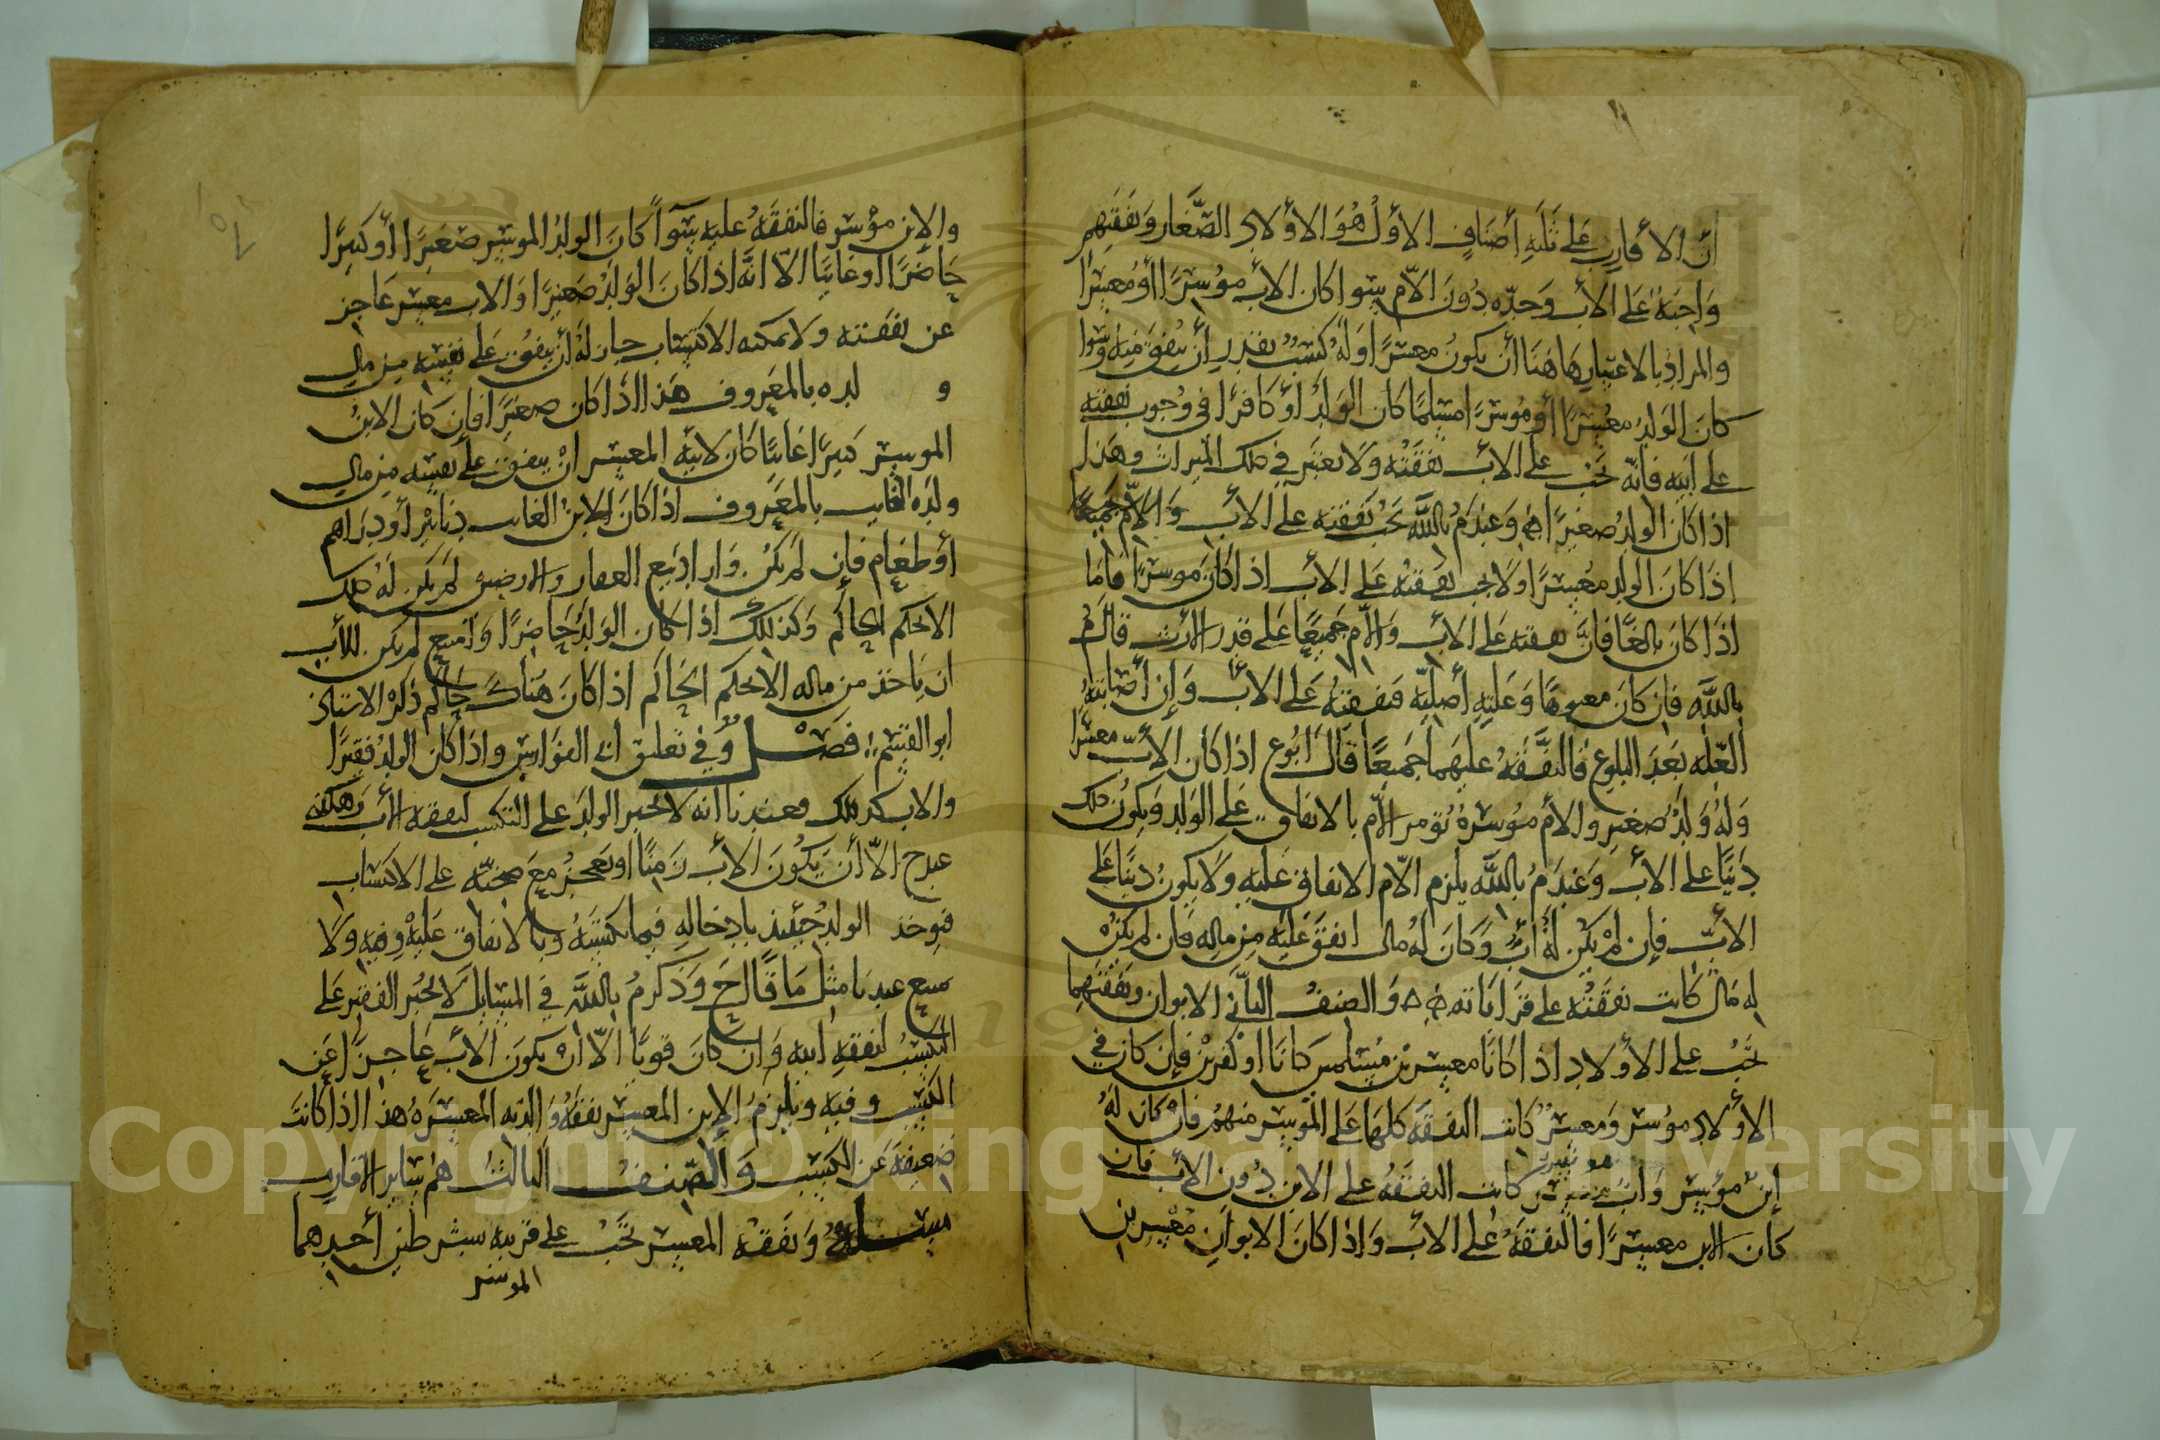 أن الأقارب على ثلثه أصناف الأول هو الأولاد الصغار ونفقتهم
واجبة على الأب وحده دون الأم سوا كان الأب موسرا أو معسرا
والمراد بالاعتبار هاهنا أن يكون معسرا وله كسب بقدر أن ينفق منه وسوا
كان الولد معسرا أو موسرا مسلما كان الولد أو كافرا في وجوب نفقته
على ابيه فانه تجب على الأب نفقته ولا يعتبر في ذلك الميراث وهذا
اذا كان الولد صغيرا وعند م بالله تجب نفقته على الأب والأم جميعا
اذا كان الولد معسرا ولا تجب نفقته على الأب اذا كان موسرا فاما
اذا كان بالغا فان نفقته على الأب والأم جميعا على قدر الارث قال م
بالله فان كان معتوها وعليه أصلية فنفقته على الأب وإن أصابته
العله بعد البلوغ فالنفقه عليهما جميعا قال ابو ع اذا كان الأب معسرا
وله ولد صغير والأم موسرة تؤمر الأم بالانفاق على الولد ويكون ذلك
دينا على الأب وعند م بالله يلزم الأم الانفاق عليه ولا يكون دينا على
الأب فإن لم يكن له أب وكان له مال انفق عليه من ماله فان لم يكن
له مال كانت نفقته على قراباته والصنف الثاني الابوان ونفقتهما
تجب على الأولاد اذا كانا معسرين مسلمين كانا او كفرين فإن كان في
الأولاد موسر ومعسر كانت النفقه كلها على الموسر منهم فان كان له
إبن مؤسر واب موسر كانت النفقه على الابن دون الأب فان
كان الابن معسرا فالنفقه على الأب واذا كان الابوان معسرين
والابن مؤسر فالنفقه عليه سوآ كان الولد الموسر صغيرا أو كبيرا
حاضرا او غايبا الا انه اذا كان الولد صغيرا والاب معسر عاجز
عن نفقته ولا يمكنه الاكتساب جاز له أن ينفق على نفسه من مال
و لده بالمعروف هذا اذا كان صغيرا فإن كان الابن
الموسر كبيرا غايبا كان لابيه المعسر ان ينفق على نفسه من مال
ولده الغايب بالمعروف اذا كان الابن الغايب دنانير أو دراهم
أو طعام فإن لم يكن واراد بيع العقار والارضين لم يكن له ذلك
الا بحكم الحاكم وكذلك اذا كان الولد حاضرا وامتنع لم يكن للأب
ان ياخذ من ماله الا بحكم الحاكم اذا كان هناك حاكم ذكره الاستاذ
ابو القسم فصل وفي تعليق ابي الفوارس واذا كان الولد فقيرا
والاب كذلك فعندنا انه لا يجبر الولد على التكسب لنفقه الأب وهكذا
عند ح الا أن يكون الأب زمنا او يعجز مع صحته على الاكتساب
فيوخذ الولد حينئذ بادخاله فيما يكتسبه وبالانفاق عليه وفيه ولا
يمتنع عندنا مثل ما قال ح وذكر م بالله في المسايل لا يجبر الفقير على
التكسب لنفقه ابيه وان كان قويا الا ان يكون الأب عاجزا عن
الكسب وفيه ويلزم الإبن المعسر نفقه والدته المعسره هذا اذا كانت
ضعيفه عن الكسب والصنف الثالث هم ساير الاقارب
مسئله ونفقه المعسر تجب على قريبه بشرطين أحدهما
الموسر